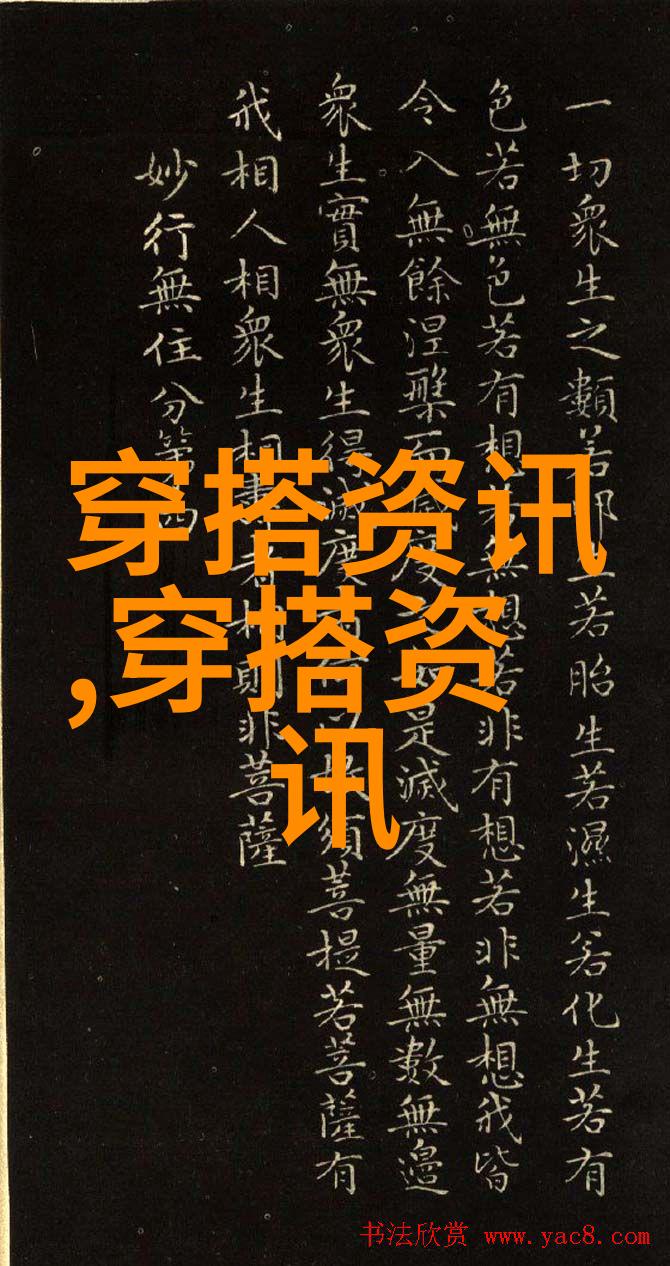 一切衆生之類若卵生若胎生若濕生若化生若有
色若無色若有想若無想若非有想若非無想我皆
令入無餘涅槃而滅度是滅度無量無數無邊
衆生實無衆生得滅度何須菩提若菩薩有
我相人相衆生相壽者相則非菩薩
妙行無住分第四
穿搭资讯
,穿搭资
讯
书法欣赏 www.yac8.com